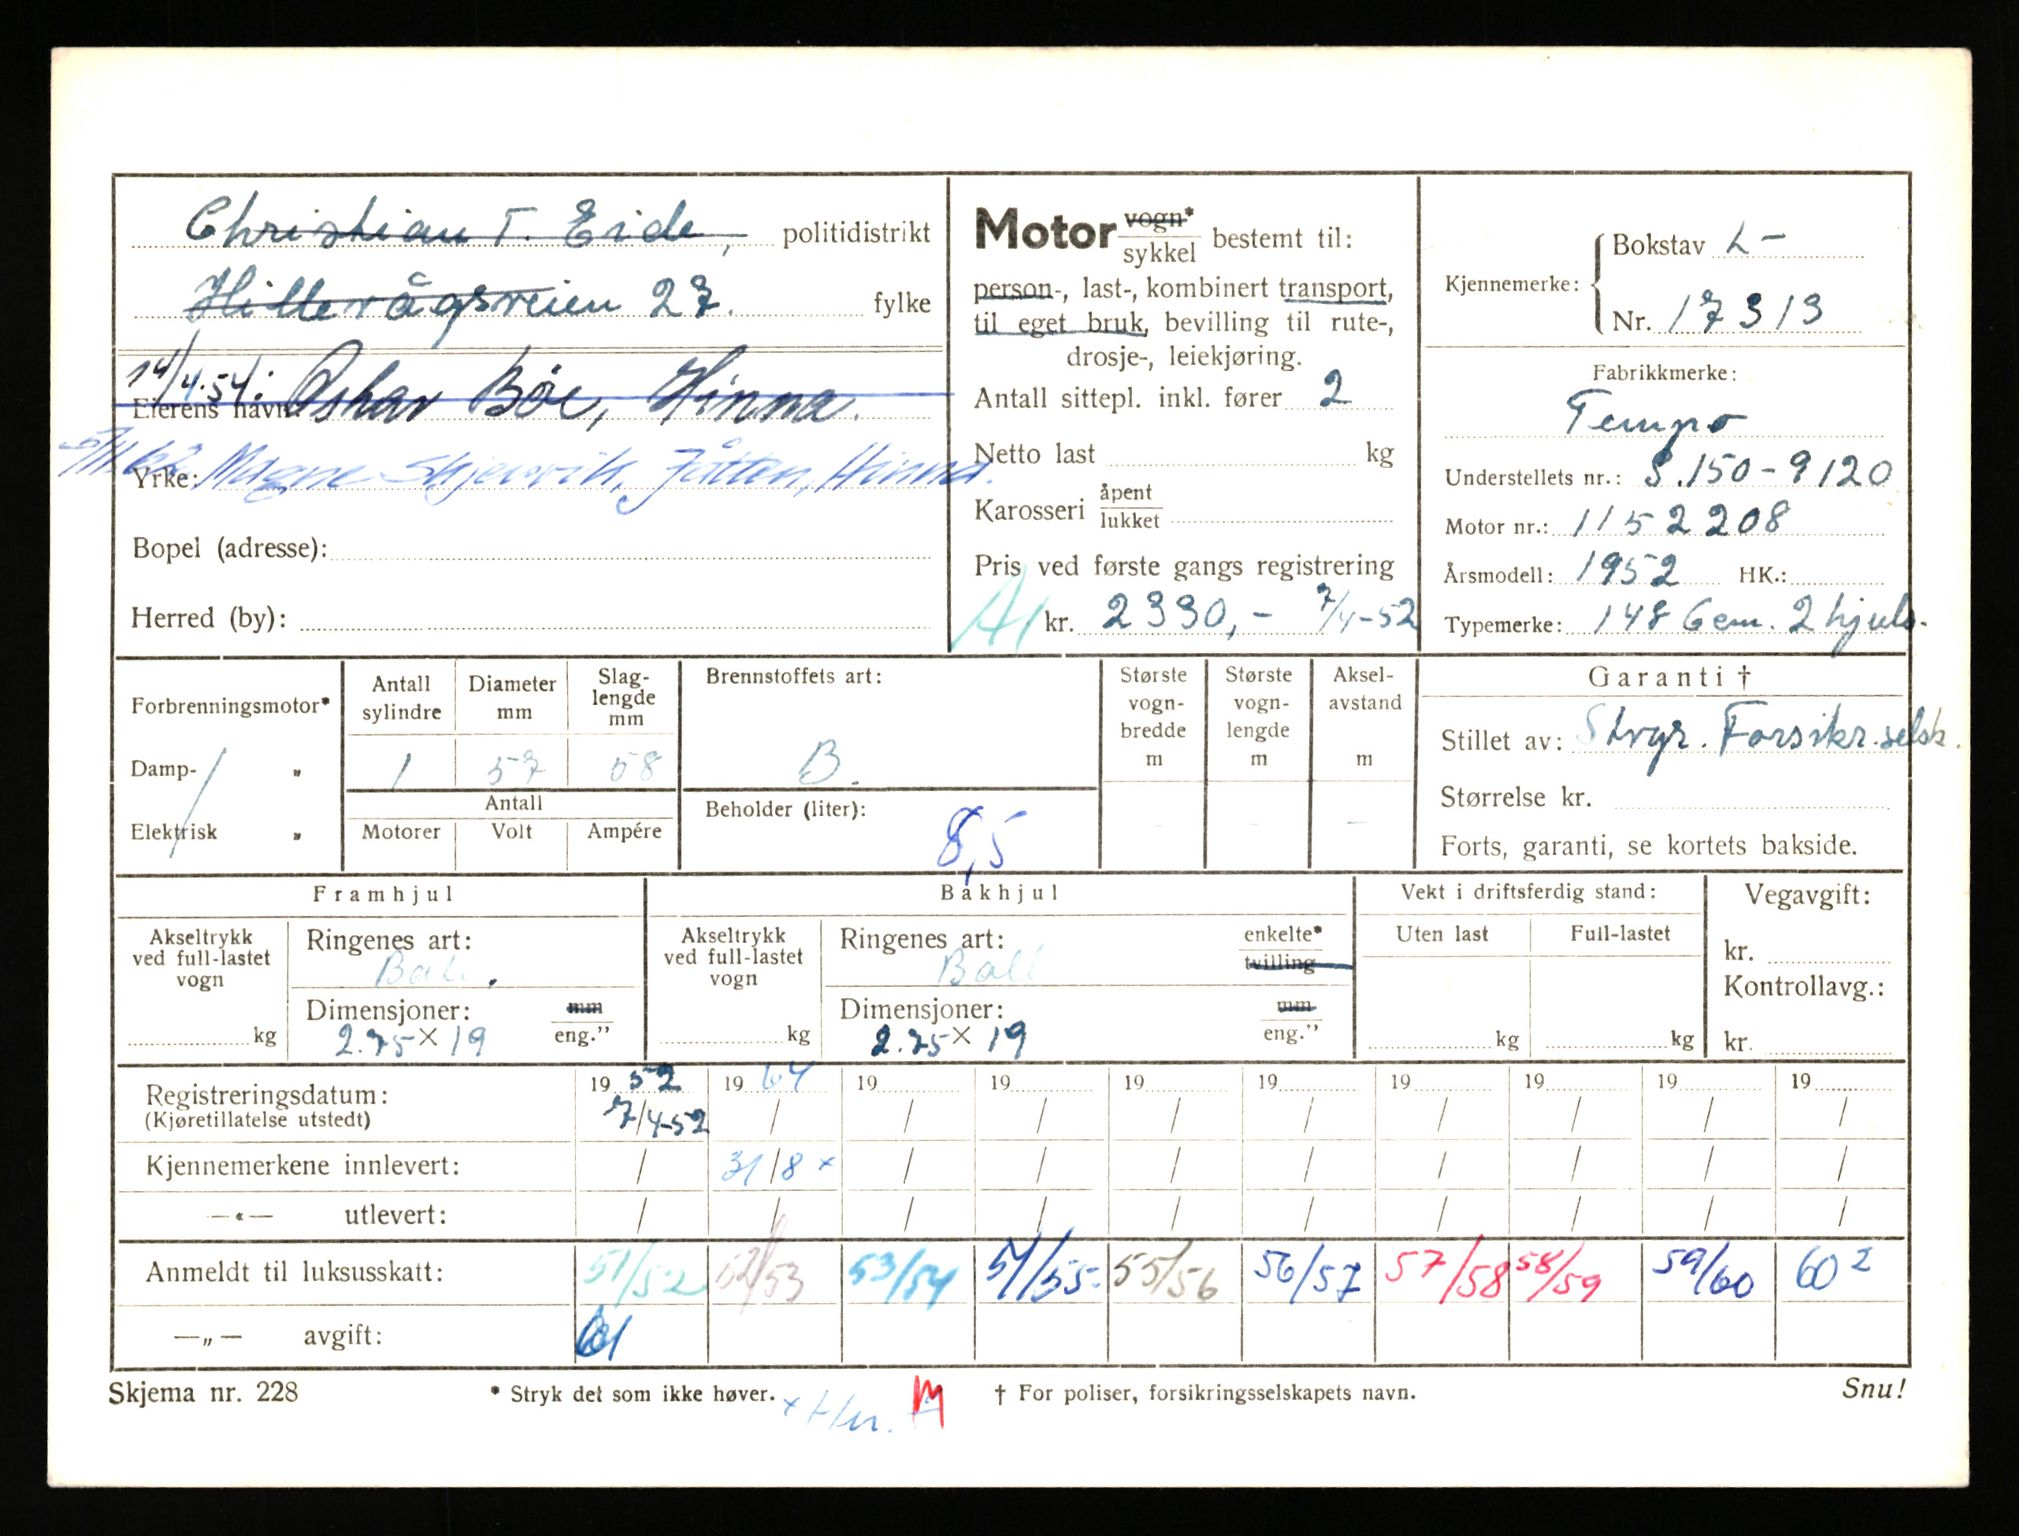 Christian T. Eide, politidistrikt
Hillevågsveien 27. fylke
14/4.54: Oskar Bøe, Hinna.
Eierens navn
5/11 62 Magne Skjervik, Jåtten, Hinna.
Yrke:
Bopel (adresse):
Herred (by):
Motor vogn* sykkel bestemt til:
person-, last-, kombinert transport,
til eget bruk, bevilling til rute-,
drosje-, leiekjøring.
Antall sittepl. inkl. fører 2
Netto last kg
Karosseri åpent lukket
Pris ved første gangs registrering
A1 kr. 2330,- 7/4-52
Kjennemerke: Bokstav L-
Nr. 17313
Fabrikkmerke:
Tempo
Understellets nr.: S.150-9120
Motor nr.: 1152208
Årsmodell: 1952 HK.:
Typemerke: 148 Gem. 2 hjuls.
Forbrenningsmotor*
Damp- "
Elektrisk "
Antall sylindre
Diameter mm
Slag- lengde mm
1 57 58
Antall
Motorer Volt Ampére
Brennstoffets art:
B.
Beholder (liter):
8,5
Største vogn- bredde m
Største vogn- lengde m
Aksel- avstand m
Garanti †
Stillet av: Strgr. Forsikr.selsk.
Størrelse kr.
Forts, garanti, se kortets bakside.
Framhjul
Akseltrykk
ved full-lastet
vogn
kg
Ringenes art:
Ball.
Dimensjoner: mm eng.”
2.75 × 19
Bakhjul
Akseltrykk
ved full-lastet
vogn
kg
Ringenes art: enkelte* tvilling
Ball
Dimensjoner: mm eng.”
2.75 × 19
Vekt i driftsferdig stand:
Uten last Full-lastet
kg kg
Vegavgift:
kr.
Kontrollavg.:
kr.
19 52 19 64 19 19 19 19 19 19 19 19
Registreringsdatum: 7/4-52 / / / / / / / / /
(Kjøretillatelse utstedt)
Kjennemerkene innlevert: / 31/8 x / / / / / / / /
—«— utlevert: / / / / / / / / / /
Anmeldt til luksusskatt: 51/52 52/53 53/54 54/55 55/56 56/57 57/58 58/59 59/60 60 2
—„— avgift: 61
Skjema nr. 228 * Stryk det som ikke høver. † For poliser, forsikringsselskapets navn. Snu!
M